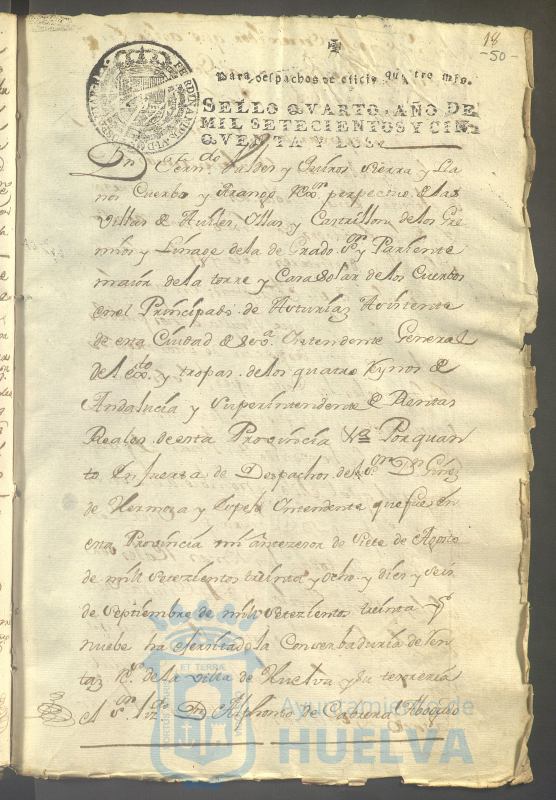 18
-50-
Para despachos de oficio quatro mrs.
SELLO QVARTO, AÑO DE
MIL SETECIENTOS Y CIN-
QVENTA Y DOS.
Dn Fern.do Valdes y Quiros Sierra y Lla
nos Cuerbo y Arango Rexor perpectuo de las
Villas de Aviles, Illas y Castrillon de los Gre
mios y Linage de la de Grado Sor y Pariente
maior de la torre y Casa Solar de los Cuerbos
en el Principado de Asturias Asistente
de esta Ciudad de Seva. Intendente General
del exto. y tropas de los quatro Rynos de
Andalucia y Superintendente de Rentas
Reales de esta Provincia &a Por quan
to En fuerza de Despachos del Sor Dn Gines
de Hermosa y Espejo Intendente que fue En
esta Provincia mi antezesor de siete de Agosto
de mill setezientos treinta y ocho y diez y seis
de septiembre de mill setezientos treinta y
nuebe ha exersitado la Conserbaduria de Ren
tas Rs de la villa de Huelva y su terreria
el Sor Lizdo Dn Alphonso de Cabrera Abogado
Ayuntamiento de
HUELVA